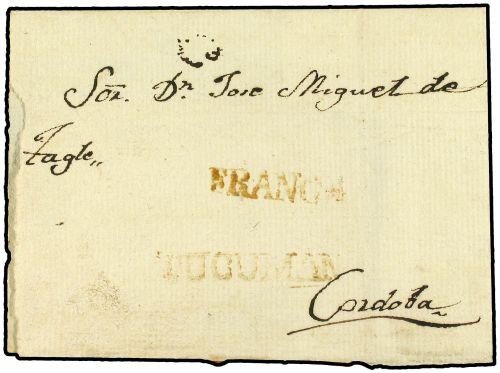 Sor. Dn. Jose Miguel de
Tagle,,
FRANCA
TUCUMAN
Cordoba